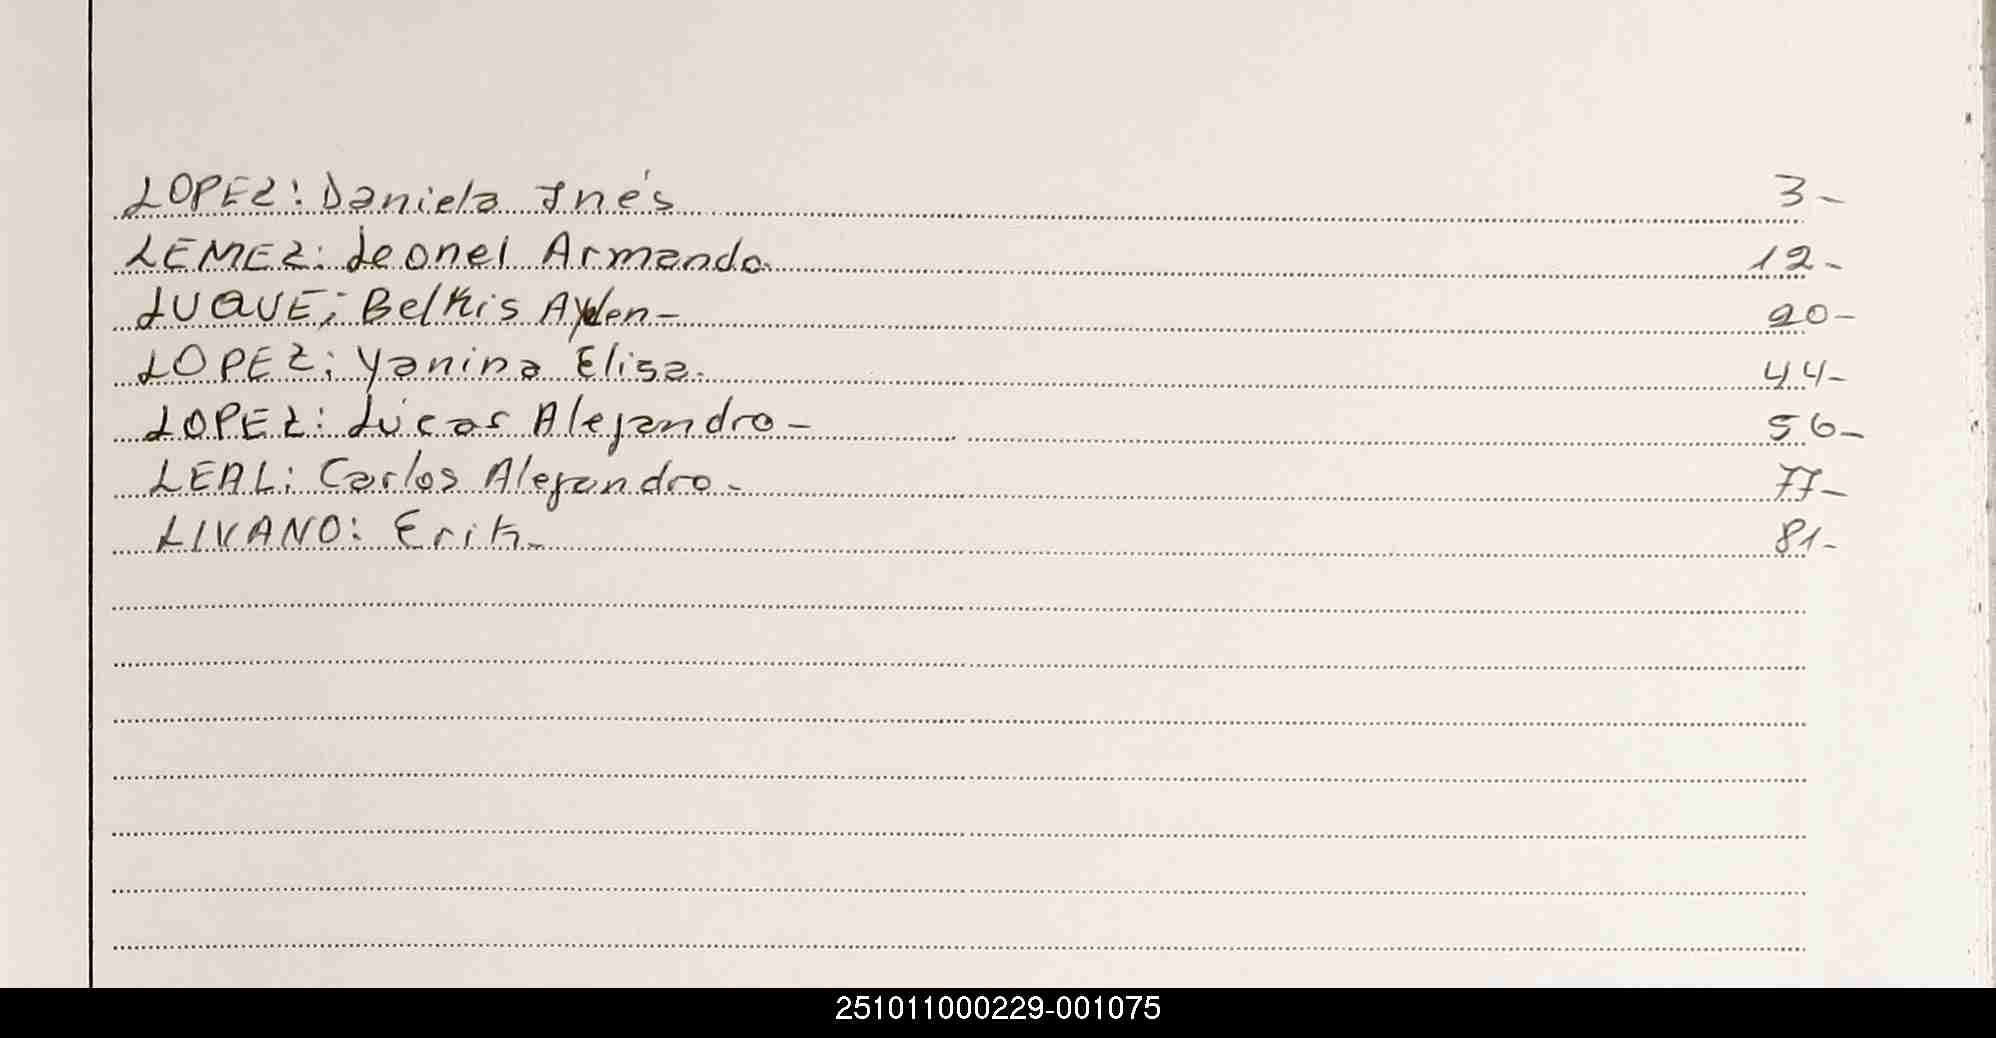 LOPEZ: Daniela Inés 3-
LEMEZ: Leonel Armando. 12-
LUQUE; Belkis Aylen- 20-
LOPEZ; Yanina Elisa. 44-
LOPEZ: Lucas Alejandro- 56-
LEAL: Carlos Alejandro- 77-
LIVANO: Erik- 81-
251011000229-001075